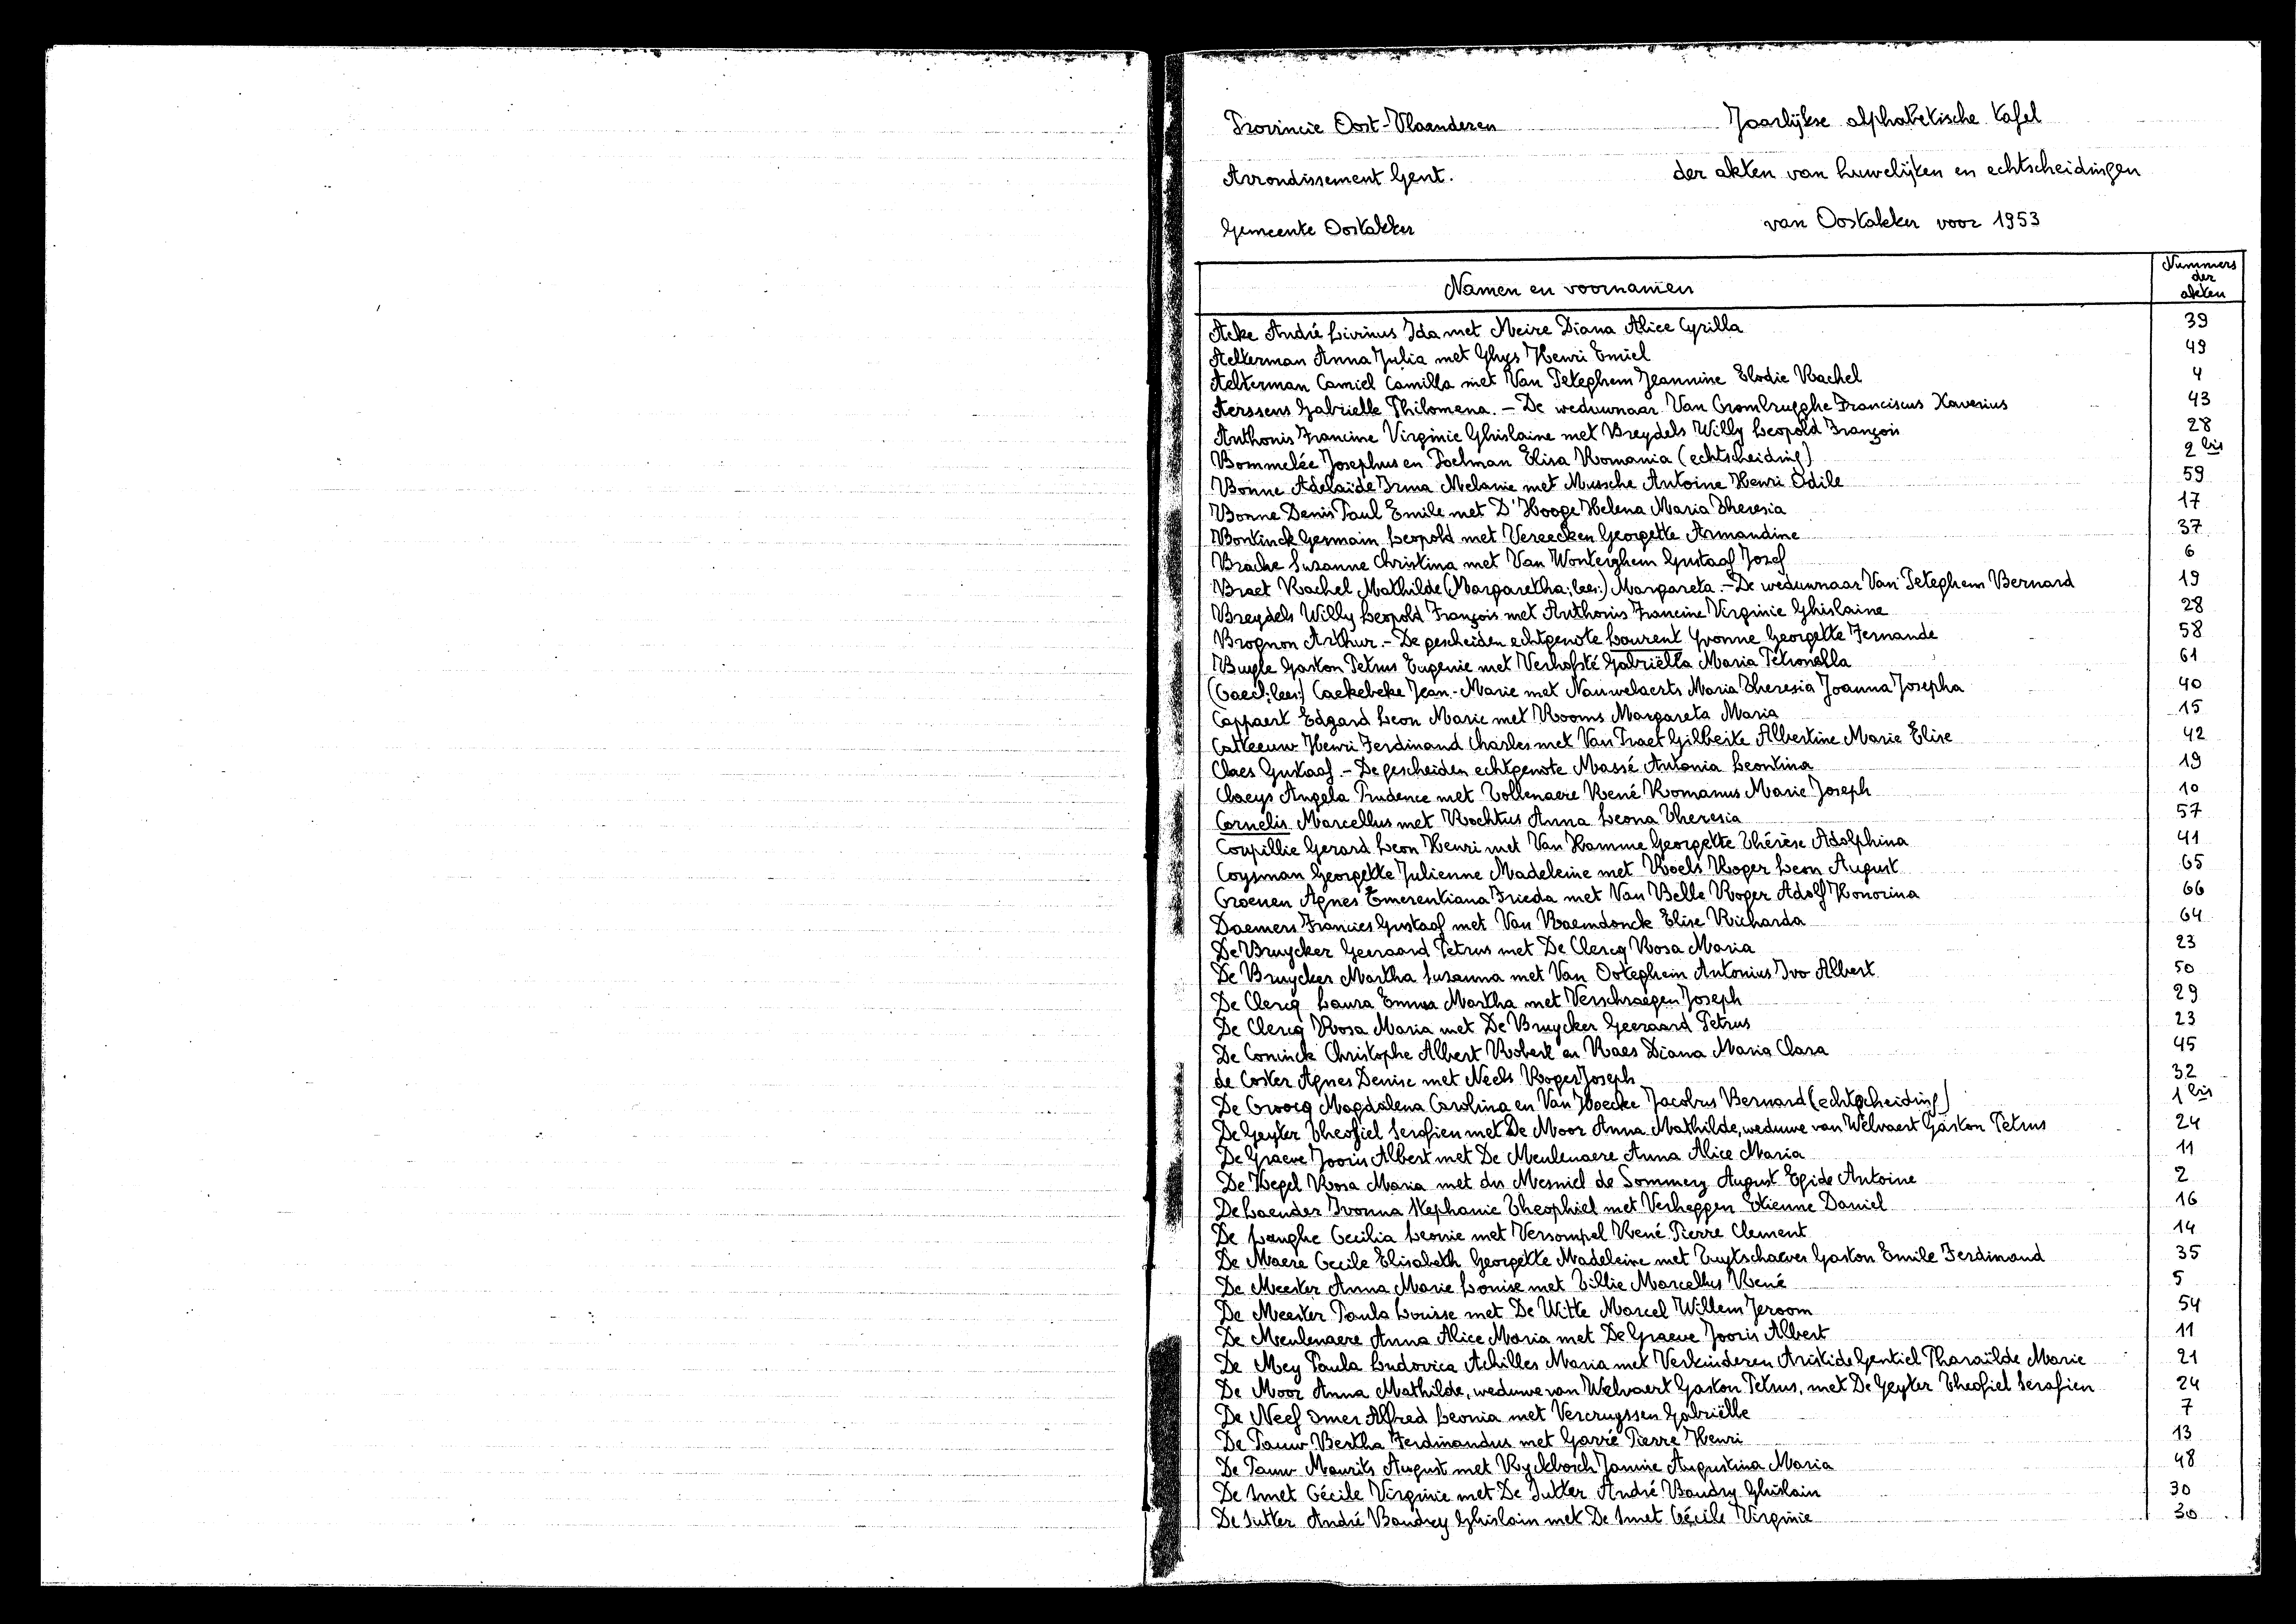 Provincie Oost-Vlaanderen
Arrondissement Gent.
Gemeente Oostakker
Jaarlijkse alphabetische tafel
der akten van huwelijken en echtscheidingen
van Oostakker voor 1953
Namen en voornamen
Nummers der akten
Acke André Livinus Ida met Meire Diana Alice Cyrilla 39
Aelterman Anna Julia met Ghys Henri Emiel 49
Aelterman Camiel Camilla met Van Peteghem Jeannine Elodie Rachel 4
Aerssens Gabrielle Philomena. - De weduwnaar Van Crombrugghe Franciscus Xaverius 43
Anthonis Francine Virginie Ghislaine met Breydels Willy Leopold François 28
Bommelée Josephus en Poelman Elisa Romania (echtscheiding) 2 bis
Bonne Adelaïde Irma Melanie met Mussche Antoine Henri Odile 59
Bonne Denis Paul Emile met D'Hooge Helena Maria Theresia 17
Bontinck Germain Leopold met Vereecken Georgette Armandine 37
Brache Suzanne Christina met Van Wonterghem Gustaaf Jozef 6
Braet Rachel Mathilde (Margaretha; lees:) Margareta. - De weduwnaar Van Peteghem Bernard 19
Breydels Willy Leopold François met Anthonis Francine Virginie Ghislaine 28
Brognon Arthur. - De gescheiden echtgenote Laurent Yvonne Georgette Fernande 58
Buyle Gaston Petrus Eugenie met Verhofsté Gabriëlla Maria Petronella 61
(Caeck; lees:) Caekebeke Jean-Marie met Nauwelaerts Maria Theresia Joanna Josepha 40
Cappaert Edgard Leon Marie met Rooms Margareta Maria 15
Catteeuw Henri Ferdinand Charles met Van Praet Gilberte Albertine Marie Elise 42
Claes Gustaaf. - De gescheiden echtgenote Massé Antonia Leontina 19
Claeys Angela Prudence met Tollenaere René Romanus Marie Joseph 10
Cornelis Marcellus met Rochtus Anna Leona Theresia 57
Coupillie Gerard Leon Henri met Van Hamme Georgette Thérèse Adolphina 41
Coysman Georgette Julienne Madeleine met Roels Roger Leon August 65
Croenen Agnes Emerentiana Frieda met Van Belle Roger Adolf Honorina 66
Daemers Francies Gustaaf met Van Raemdonck Elise Richarda 64
De Bruycker Geeraard Petrus met De Clercq Rosa Maria 23
De Bruycker Martha Suzanna met Van Ooteghem Antonius Ivo Albert 50
De Clercq Laura Emma Martha met Verschraegen Joseph 29
De Clercq Rosa Maria met De Bruycker Geeraard Petrus 23
De Coninck Christophe Albert Robert en Raes Diana Maria Clara 45
de Coster Agnes Denise met Neels Roger Joseph 32
De Croocq Magdalena Carolina en Van Hoecke Jacobus Bernard (echtscheiding) 1 bis
De Geyter Theofiel Serafien met De Moor Anna Mathilde, weduwe van Welvaert Gaston Petrus 24
De Graeve Jooris Albert met De Meulenaere Anna Alice Maria 11
De Hegel Rosa Maria met du Mesniel de Sommery August Egide Antoine 2
De Laender Ivonna Stephanie Theophiel met Verheggen Etienne Daniel 16
De Langhe Cecilia Leonie met Versompel René Pierre Clement 14
De Maere Cecile Elisabeth Georgette Madeleine met Tuytschaever Gaston Emile Ferdinand 35
De Meester Anna Marie Louise met Tillie Marcellus René 5
De Meester Paula Louisse met De Witte Marcel Willem Jeroom 54
De Meulenaere Anna Alice Maria met De Graeve Jooris Albert 11
De Mey Paula Ludovica Achilles Maria met Verkinderen Aristide Gentiel Pharaïlde Marie 21
De Moor Anna Mathilde, weduwe van Welvaert Gaston Petrus, met De Geyter Theofiel Serafien 24
De Neef Omer Alfred Leonia met Vercruyssen Gabriëlle 7
De Pauw Bertha Ferdinandus met Garré Pierre Henri 13
De Pauw Maurits August met Ryckbosch Janine Augustina Maria 48
De Smet Cécile Virginie met De Sutter André Baudry Ghislain 30
De Sutter André Baudry Ghislain met De Smet Cécile Virginie 30